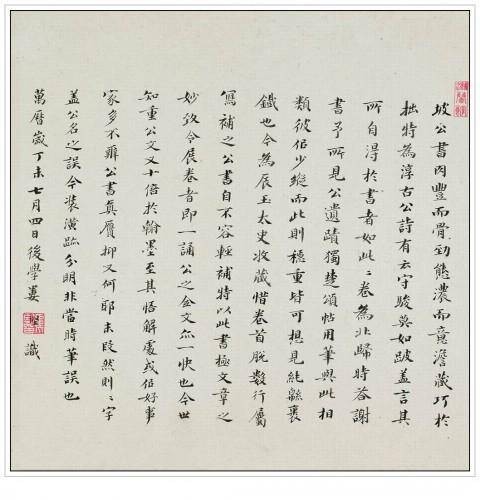 坡公書肉豐而骨勁態濃而意澹藏巧於
拙特為淳古公詩有云守駿莫如跛蓋言其
所自得於書者如此〻卷為北歸時答謝
書予所見公遺蹟獨楚頌帖用筆與此相
類彼似少縱而此則穩重皆可想見純緜裹
鐵也今為辰玉太史收藏惜卷首脫數行屬
寫補之公書自不容輕補特以此書極文章之
妙致令展卷者即一誦公之全文亦一快也今世
知重公文又十倍於翰墨至其悟解處或但好事
家多不辨公書真贋抑又何耶末段然則〻字
蓋公名之誤今裝潢跡分明非當時筆誤也
萬曆歲丁未七月四日後學婁堅識